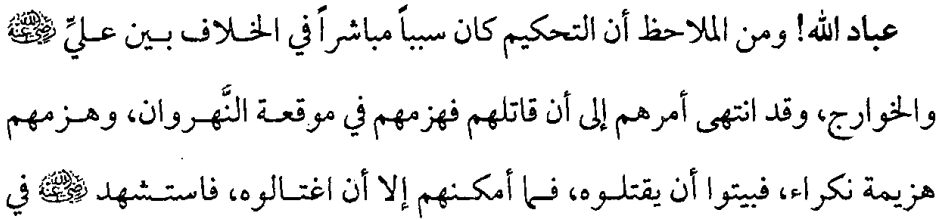 عباد الله! ومن الملاحظ أن التحكيم كان سبباً مباشراً في الخلاف بين عليٍّ رضي الله عنه
والخوارج، وقد انتهى أمرهم إلى أن قاتلهم فهزمهم في موقعة النَّهروان، وهزمهم
هزيمة نكراء، فبيتوا أن يقتلوه، فما أمكنهم إلا أن اغتالوه، فاستشهد رضي الله عنه في